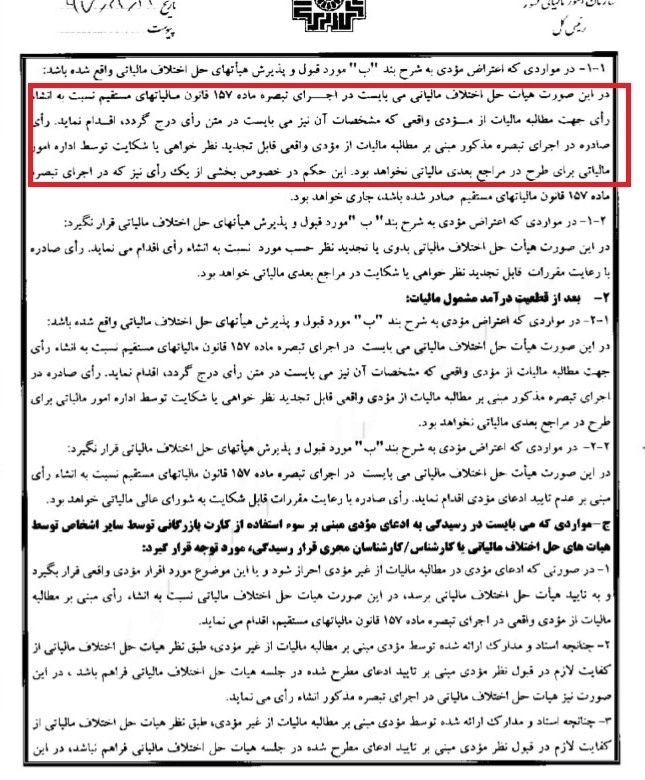 سازمان امور مالیاتی کشور
رئیس کل
تاریخ
پیوست
۱-۱- در مواردی که اعتراض مؤدی به شرح بند "ب" مورد قبول و پذیرش هیأتهای حل اختلاف مالیاتی واقع شده باشد:
در این صورت هیات حل اختلاف مالیاتی می بایست در اجرای تبصره ماده ۱۵۷ قانون مالیاتهای مستقیم نسبت به انشاء
رأی جهت مطالبه مالیات از مؤدی واقعی که مشخصات آن نیز می بایست در متن رأی درج گردد، اقدام نماید. رأی
صادره در اجرای تبصره مذکور مبنی بر مطالبه مالیات از مؤدی واقعی قابل تجدید نظر خواهی یا شکایت توسط اداره امور
مالیاتی برای طرح در مراجع بعدی مالیاتی نخواهد بود. این حکم در خصوص بخشی از یک رأی نیز که در اجرای تبصره
ماده ۱۵۷ قانون مالیاتهای مستقیم صادر شده باشد، جاری خواهد بود.
۱-۲- در مواردی که اعتراض مؤدی به شرح بند" ب "مورد قبول و پذیرش هیأتهای حل اختلاف مالیاتی قرار نگیرد:
در این صورت هیأت حل اختلاف مالیاتی بدوی یا تجدید نظر حسب مورد نسبت به انشاء رأی اقدام می نماید. رأی صادره
با رعایت مقررات قابل تجدید نظر خواهی یا شکایت در مراجع بعدی مالیاتی خواهد بود.
۲- بعد از قطعیت درآمد مشمول مالیات:
۲-۱- در مواردی که اعتراض مؤدی به شرح بند "ب" مورد قبول و پذیرش هیأتهای حل اختلاف مالیاتی واقع شده باشد:
در این صورت هیات حل اختلاف مالیاتی می بایست در اجرای تبصره ماده ۱۵۷ قانون مالیاتهای مستقیم نسبت به انشاء رأی
جهت مطالبه مالیات از مؤدی واقعی که مشخصات آن نیز می بایست در متن رأی درج گردد، اقدام نماید. رأی صادره در
اجرای تبصره مذکور مبنی بر مطالبه مالیات از مؤدی واقعی قابل تجدید نظر خواهی یا شکایت توسط اداره امور مالیاتی برای
طرح در مراجع بعدی مالیاتی نخواهد بود.
۲-۲- در مواردی که اعتراض مؤدی به شرح بند"ب" مورد قبول و پذیرش هیأتهای حل اختلاف مالیاتی قرار نگیرد:
در این صورت هیات حل اختلاف مالیاتی می بایست در اجرای تبصره ماده ۱۵۷ قانون مالیاتهای مستقیم نسبت به انشاء رأی
مبنی بر عدم تایید ادعای مؤدی اقدام نماید. رأی صادره با رعایت مقررات قابل شکایت به شورای عالی مالیاتی خواهد بود.
ج-مواردی که می بایست در رسیدگی به ادعای مؤدی مبنی بر سوء استفاده از کارت بازرگانی توسط سایر اشخاص توسط
هیات های حل اختلاف مالیاتی یا کارشناس/کارشناسان مجری قرار رسیدگی، مورد توجه قرار گیرد:
۱- در صورتی که ادعای مؤدی در مطالبه مالیات از غیر مؤدی احراز شود و یا این موضوع مورد اقرار مؤدی واقعی قرار بگیرد
و به تایید هیأت حل اختلاف مالیاتی برسد، در این صورت هیات حل اختلاف مالیاتی نسبت به انشاء رأی مبنی بر مطالبه
مالیات از مؤدی واقعی در اجرای تبصره ماده ۱۵۷ قانون مالیاتهای مستقیم، اقدام می نماید.
۲- چنانچه اسناد و مدارک ارائه شده توسط مؤدی مبنی بر مطالبه مالیات از غیر مؤدی، طبق نظر هیات حل اختلاف مالیاتی از
کفایت لازم در قبول نظر مؤدی مبنی بر تایید ادعای مطرح شده در جلسه هیات حل اختلاف مالیاتی فراهم باشد ، در این
صورت نیز هیات حل اختلاف مالیاتی در اجرای تبصره مذکور انشاء رأی می نماید.
۳- چنانچه اسناد و مدارک ارائه شده توسط مؤدی مبنی بر مطالبه مالیات از غیر مؤدی، طبق نظر هیات حل اختلاف مالیاتی از
کفایت لازم در قبول نظر مؤدی مبنی بر تایید ادعای مطرح شده در جلسه هیات حل اختلاف مالیاتی فراهم نباشد، در این